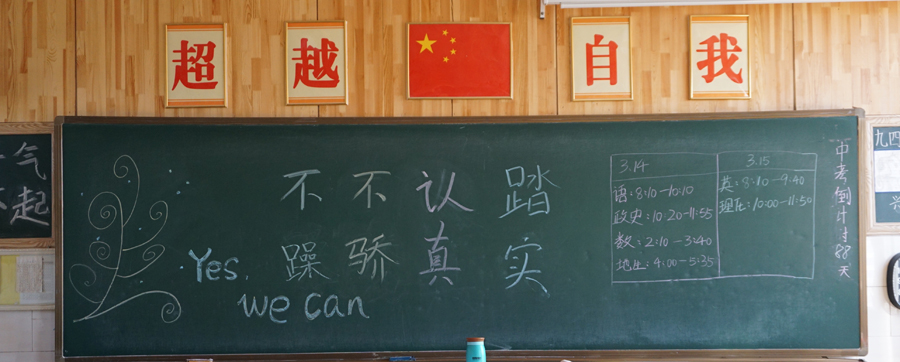 超越自我
踏实
认真
不骄
不躁
Yes,
we can
3.14
语:8:10-10:10
政史:10:20-11:55
数:2:10-3:40
地生:4:00-5:35
3.15
英:8:10-9:40
理化:10:00-11:50
中考倒计时88天
气
起
九四